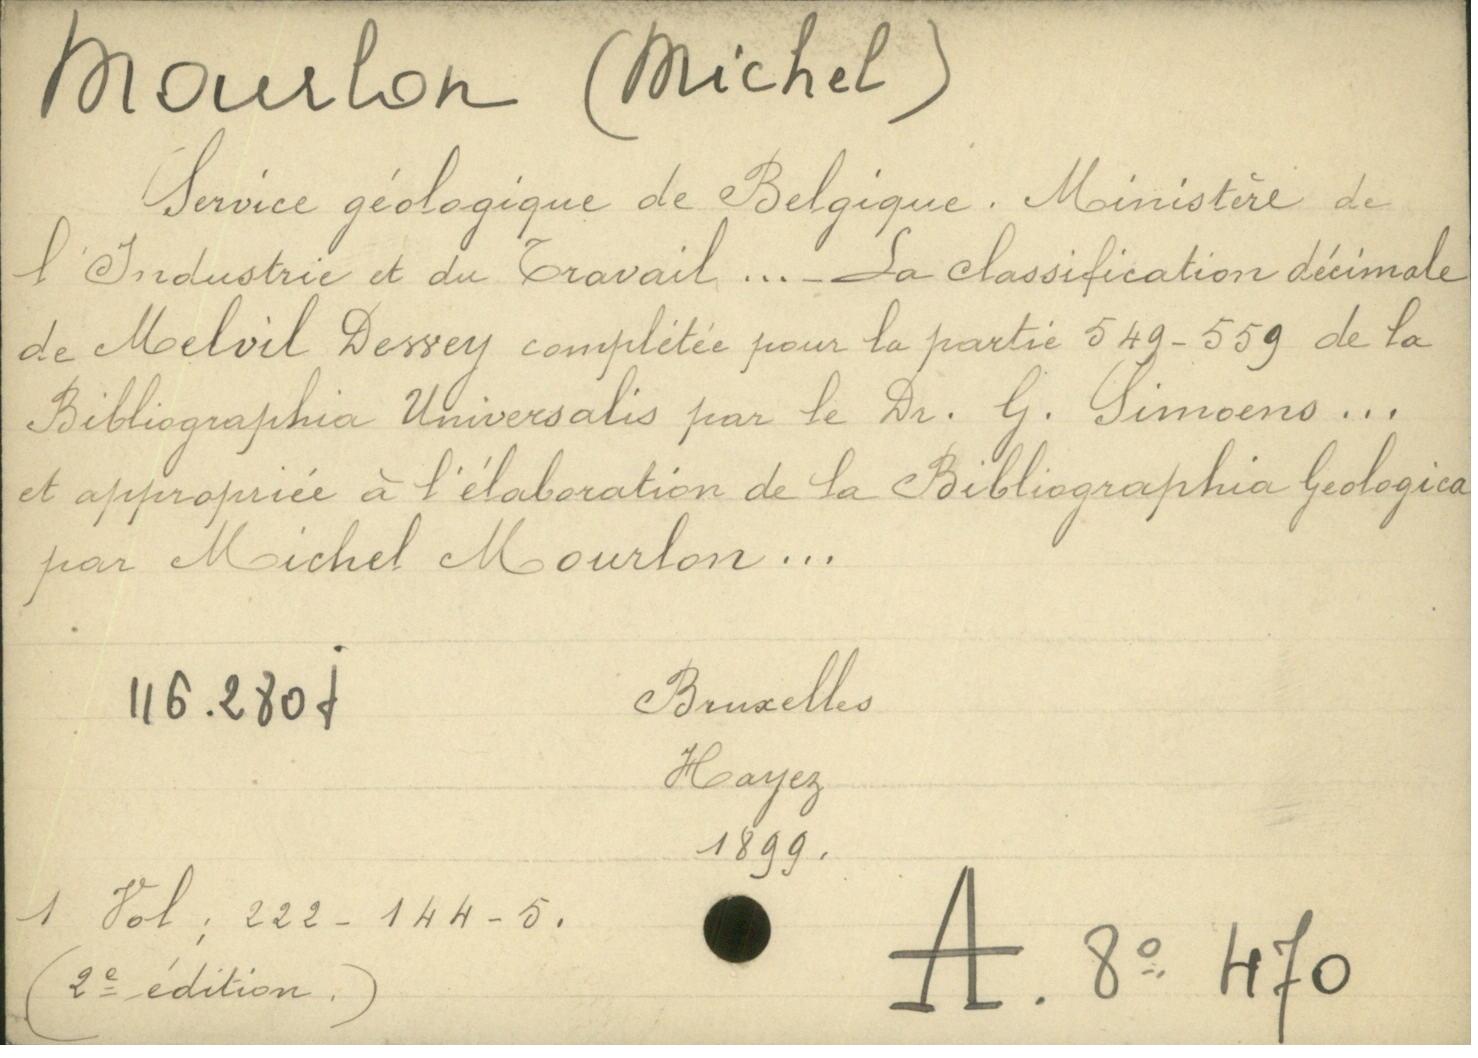 Mourlon (Michel)
Service géologique de Belgique. Ministère de
l'Industrie et du Travail ... - La classification décimale
de Melvil Dewey complétée pour la partie 549-559 de la
Bibliographia Universalis par le Dr. G. Simoens ...
et appropriée à l'élaboration de la Bibliographia Geologica
par Michel Mourlon ...
116.280
Bruxelles
Hayez
1899.
1 Vol ; 222 - 144 - 5.
(2e édition.)
A. 8o 470